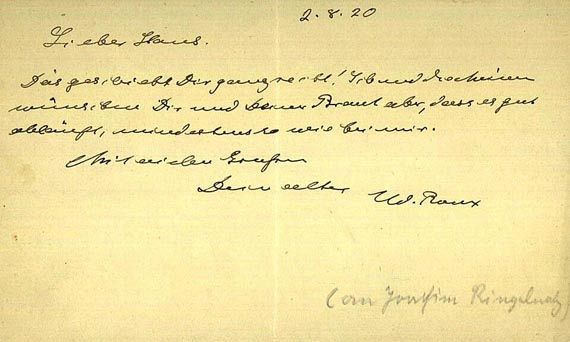 2. 8. 20
Lieber Hans.
Das geschieht Dir ganz recht! Ich und die meinen
wünschen Dir und Deiner Braut aber, dass es gut
abläuft, mindestens so wie bei mir.
Mit vielen Grüßen
Dein alter
(an Joachim Ringelnatz)